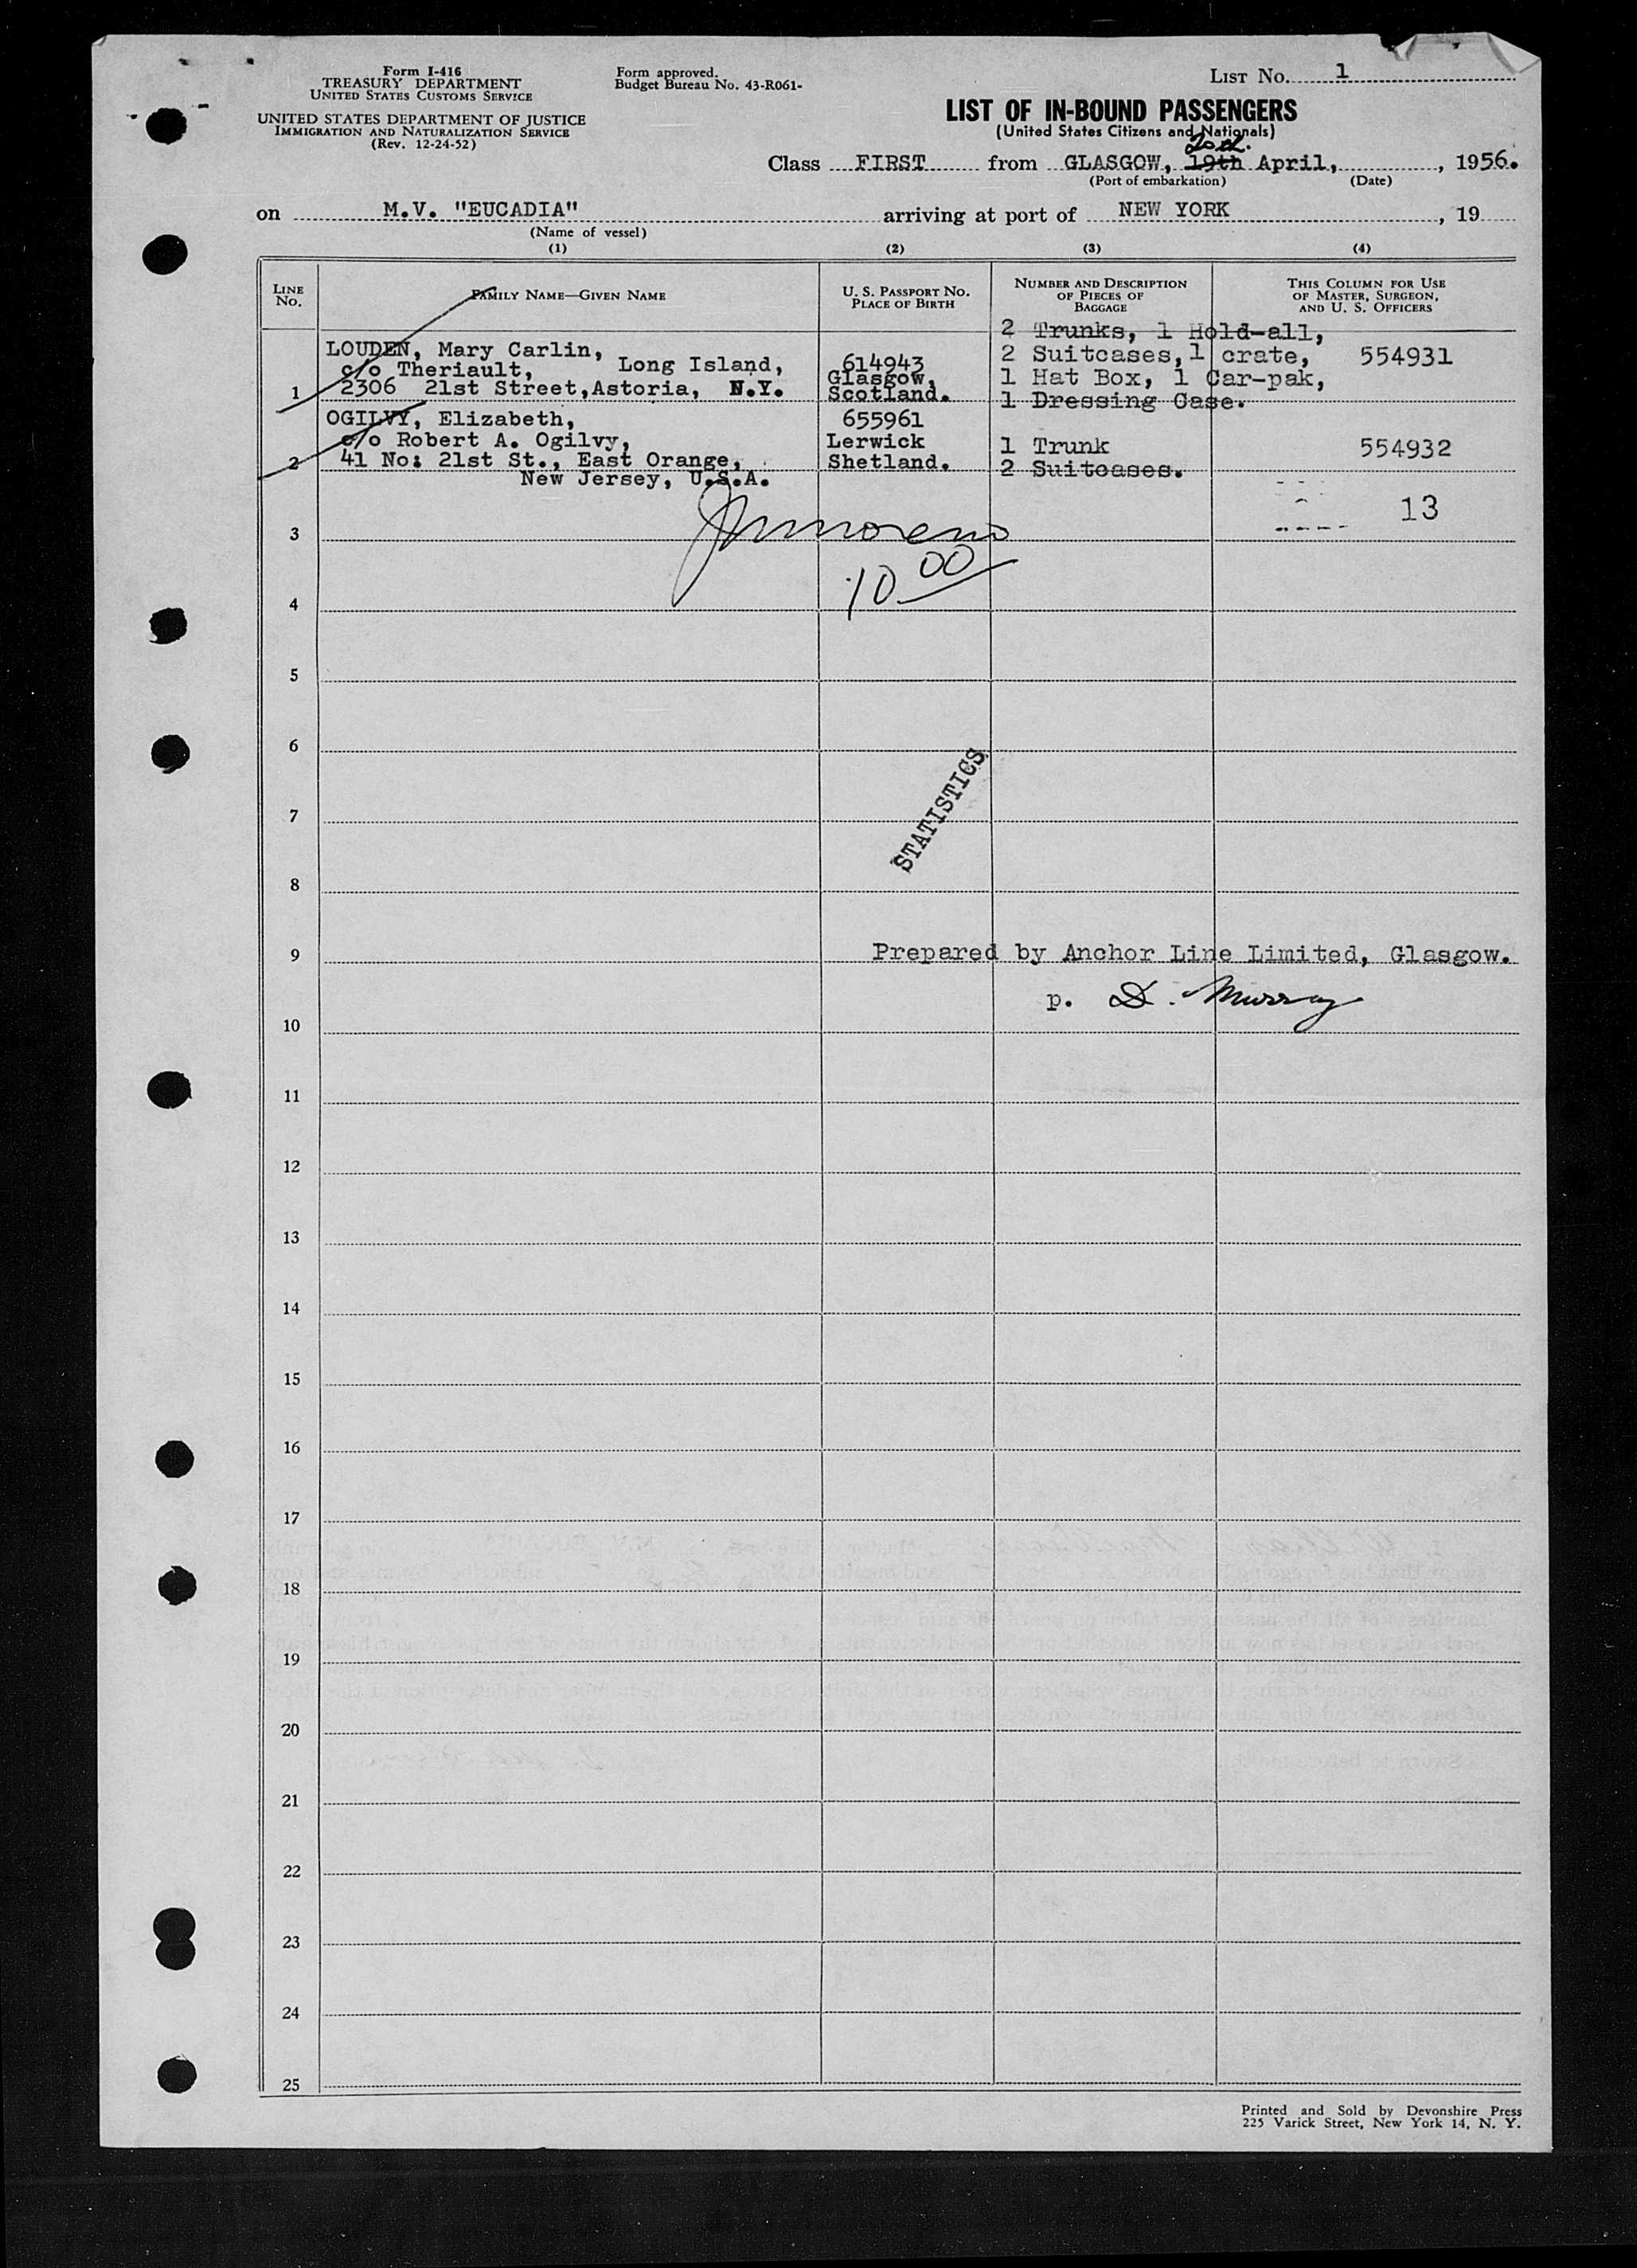 Form I-416
TREASURY DEPARTMENT
UNITED STATES CUSTOMS SERVICE
UNITED STATES DEPARTMENT OF JUSTICE
IMMIGRATION AND NATURALIZATION SERVICE
(Rev. 12-24-52)
Form approved.
Budget Bureau No. 43-R061-
LIST NO. 1
LIST OF IN-BOUND PASSENGERS
(United States Citizens and Nationals)
20th.
Class FIRST from GLASGOW, 19th April, , 1956.
(Port of embarkation) (Date)
on M.V. "EUCADIA" arriving at port of NEW YORK , 19
(Name of vessel)
(1) (2) (3) (4)
LINE NO.
FAMILY NAME—GIVEN NAME
U. S. PASSPORT NO.
PLACE OF BIRTH
NUMBER AND DESCRIPTION
OF PIECES OF
BAGGAGE
THIS COLUMN FOR USE
OF MASTER, SURGEON,
AND U. S. OFFICERS
1
LOUDEN, Mary Carlin,
c/o Theriault, Long Island,
2306 21st Street, Astoria, N.Y.
614943
Glasgow,
Scotland.
2 Trunks, 1 Hold-all,
2 Suitcases, 1 crate,
1 Hat Box, 1 Car-pak,
1 Dressing Case.
554931
2
OGILVY, Elizabeth,
c/o Robert A. Ogilvy,
41 No: 21st St., East Orange,
New Jersey, U.S.A.
655961
Lerwick
Shetland.
1 Trunk
2 Suitcases.
554932
13
3
JMmoreno
10 00
4
5
6
7
STATISTICS
8
9
Prepared by Anchor Line Limited, Glasgow.
p. D. Murray
10
11
12
13
14
15
16
17
18
19
20
21
22
23
24
25
Printed and Sold by Devonshire Press
225 Varick Street, New York 14, N. Y.